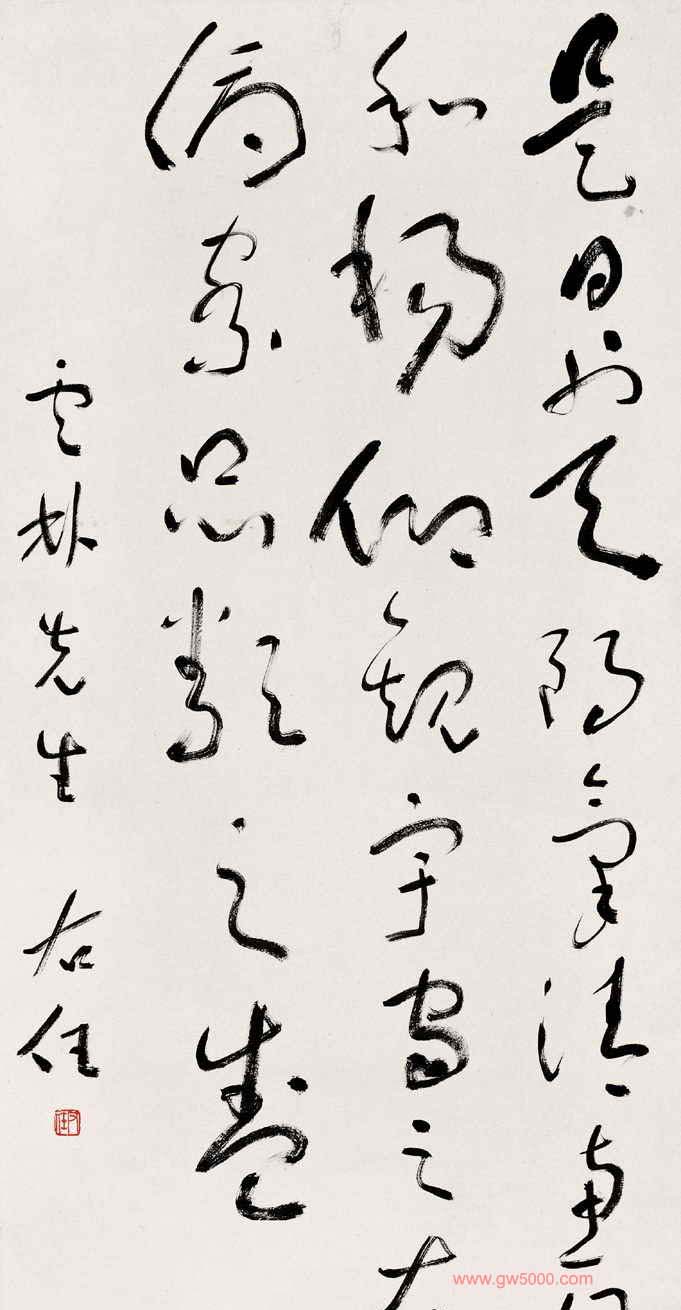 是日也天朗氣清惠風
和暢仰觀宇宙之大
俯察品類之盛
雲林先生 右任
www.gw5000.com